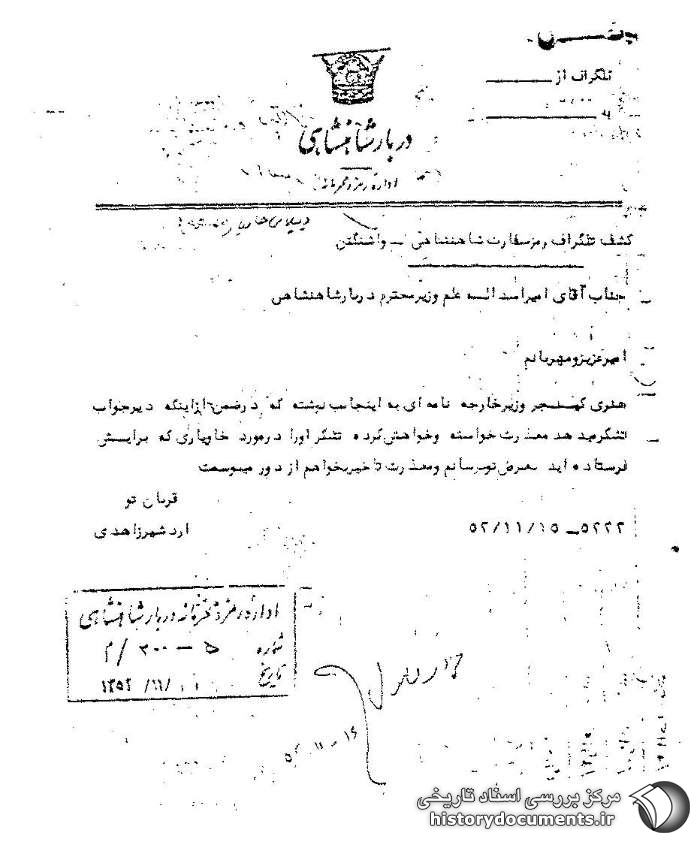 تلگراف از
به
دربار شاهنشاهی
اداره رمز و محرمانه
کشف تلگراف رمز سفارت شاهنشاهی ــ واشنگتن
جناب آقای امیر اسد الله علم وزیر محترم دربار شاهنشاهی
امیر عزیز و مهربانم
هنری کیسینجر وزیر خارجه نامه ای به اینجانب نوشته که در ضمن از اینکه دیر جواب
تشکر میدهد معذرت خواسته و خواهش کرده تشکر او را در مورد خاویاری که برایش
فرستاده اید بعرض تو برسانم و معذرت تاخیر بخواهم از دور میبوسمت
قربان تو
اردشیر زاهدی
۵۲۲۲ــ ۵۲/۱۱/۱۵
اداره رمز و محرمانه دربار شاهنشاهی
شماره ۵ – ۲۰۰ / م
تاریخ / ۱۱/ ۱۳۵۲
۵۲ــ۱۱ــ۱۶
مرکز بررسی اسناد تاریخی
historydocuments.ir